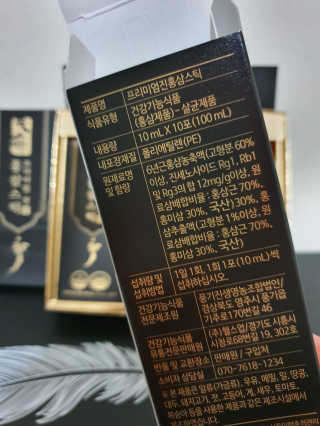 제품명 프리미엄진홍삼스틱
식품유형 건강기능식품
(홍삼제품) - 살균제품
내용량 10 mL X 10포(100 mL)
내포장재질 폴리에틸렌(PE)
원재료명 6년근홍삼농축액(고형분 60%
및 함량 이상, 진세노사이드 Rg1, Rb1
및 Rg3의 합 12mg/g이상, 원
료삼배합비율 : 홍삼근 70%,
홍미삼 30%, 국산)30%, 홍
삼추출액(고형분 1%이상, 원
료삼배합비율 : 홍삼근 70%,
홍미삼 30%, 국산)
섭취량 및 1일 1회, 1회 1포(10 mL)씩
섭취방법 섭취하십시오.
건강기능식품 풍기진생영농조합법인/
전문제조원 경상북도 영주시 풍기읍
170번길 46
건강기능식품 (주)헬스업/경기도 시흥시
유통전문판매원 68번길 19, 302호
반품 및 교환장소 판매원 / 구입처
소비자 상담실 070-7618-1234
본 제품은 알류(가금류), 우유, 메밀, 밀, 땅콩,
대두, 돼지고기, 잣, 고등어, 게, 새우, 토마토,
복숭아 등을 사용한 제품과 같은 제조시설에서